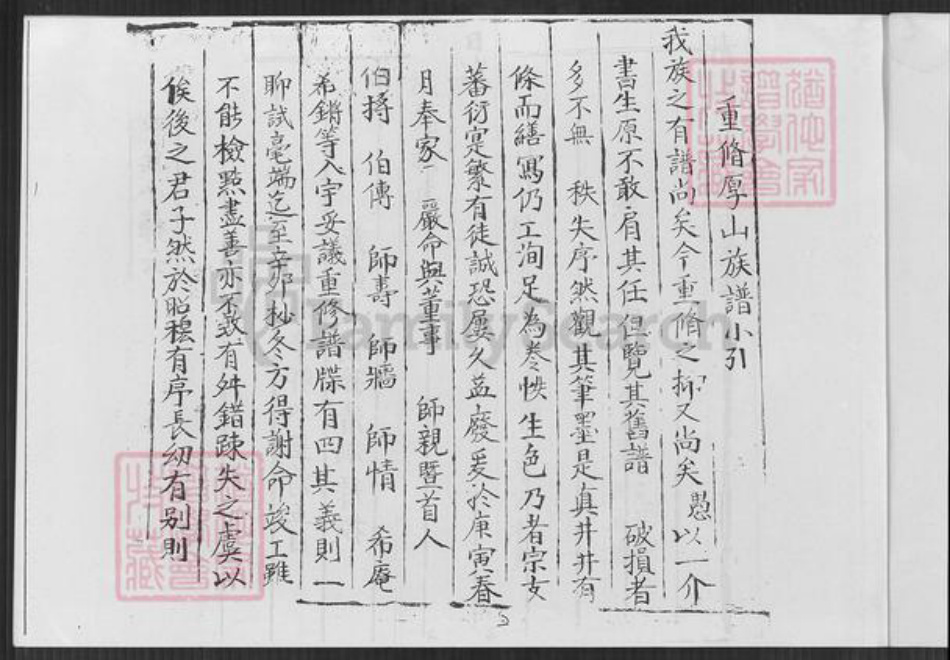 重脩厚山族譜小引
我族之有譜尚矣今重脩之抑又尚矣愚以一介
書生原不敢肩其任但覽其舊譜 破損者
多不無 秩失序然觀其筆墨是真井井有
條而繕寫仍工洵足為卷帙生色乃者宗女
蕃衍寔繁有徒誠恐屢久益廢爰於庚寅春
月奉家 嚴命與董事 師親暨首人
伯搏 伯傳 師壽 師墻 師情 希庵
希鏘等入宇妥議重修譜牒有四其義則一
聊試毫端迄至辛卯抄冬方得謝命竣工雖
不能檢點盡善亦不致有舛錯踈失之虞以
俟後之君子然於昭穆有序長幼有別則
FamilySearch